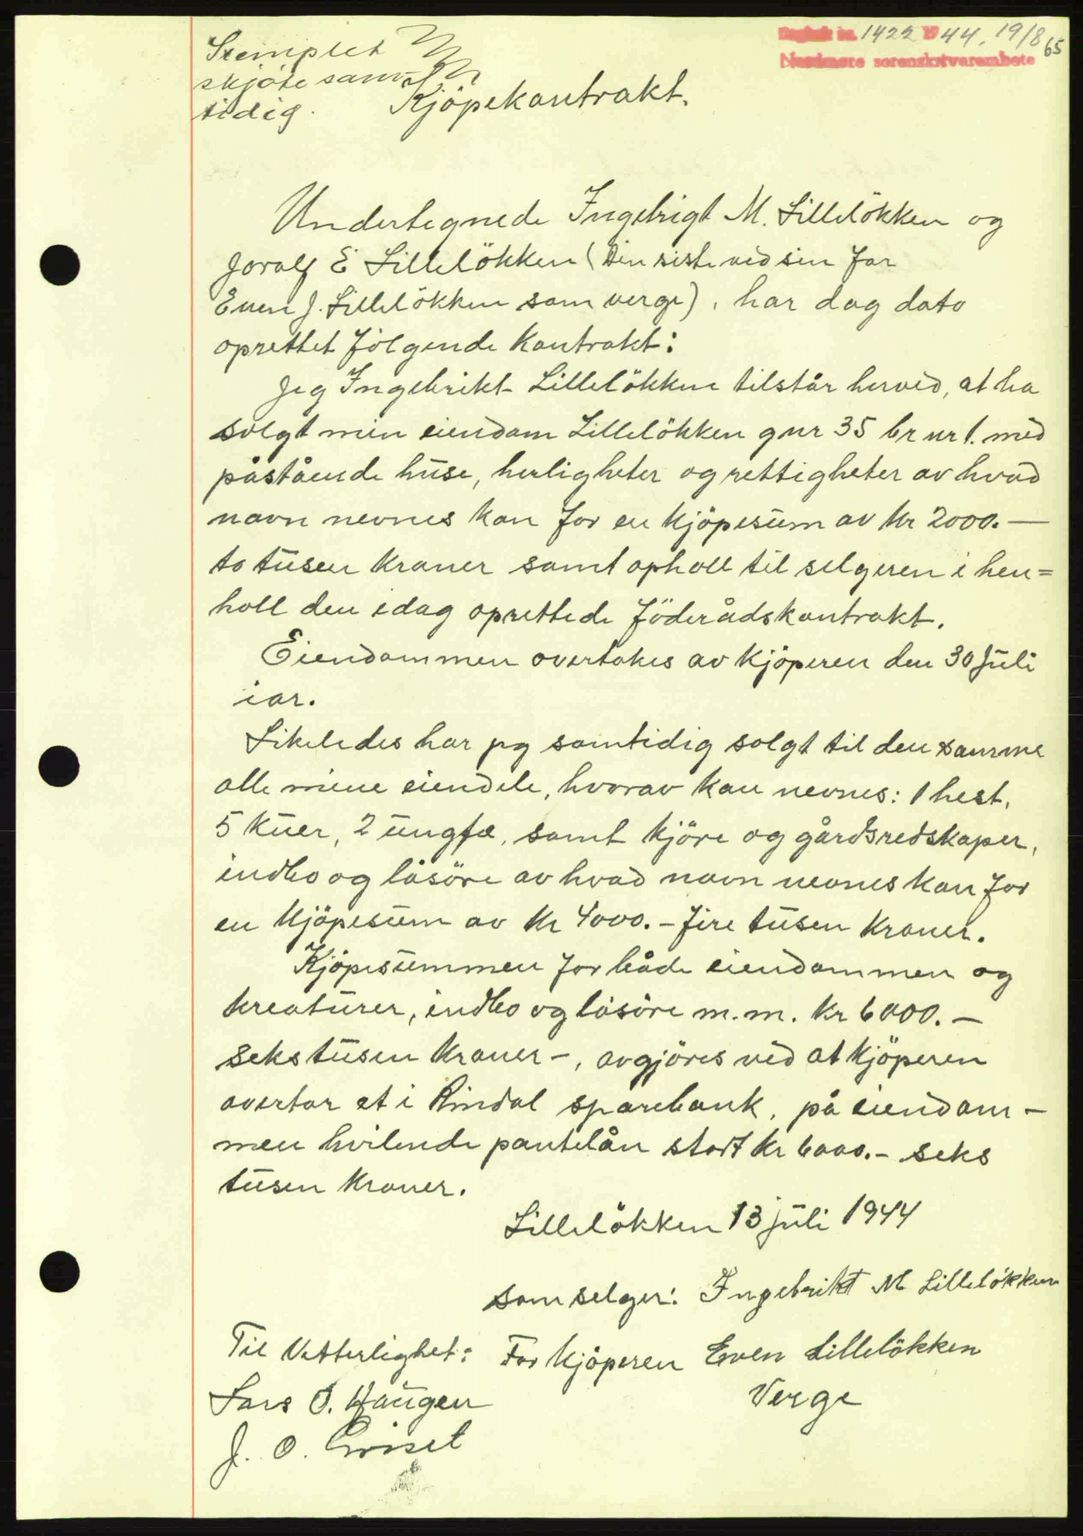 Dagbok nr. 1422 1944, 19/8
Nordmøre sorenskriverembete 65
Stemplet
skjöte sam-
tidig.
Kjöpekontrakt.
Undertegnede Ingebrigt M. Lillelökken og
Joralf E Lillelökken (den siste ved sin far
Even J. Lillelökken som verge), har dag dato
oprettet fölgende kontrakt:
Jeg Ingebrikt Lillelökken tilstår herved, at ha
solgt min eiendom Lillelökken gnr 35 br nr 1. med
påstående huse, herligheter og rettigheter av hvad
navn nevnes kan for en kjöpesum av kr 2000.—
to tusen kroner samt opholl til selgeren i hen=
holl den idag oprettede föderådskontrakt.
Eiendommen overtakes av kjöperen den 30 juli
iår.
Likeledes har jeg samtidig solgt til den samme
alle mine eiendele, hvorav kan nevnes: 1 hest,
5 kuer, 2 ungfæ, samt kjöre og gårdsredskaper,
indbo og lösöre av hvad navn nevnes kan for
en kjöpesum av kr 4000.- fire tusen kroner.
Kjöpesummen for både eiendommen og
kreaturer, indbo og lösöre m.m. kr 6000.—
seks tusen kroner-, avgjöres ved at kjöperen
overtar et i Rindal sparebank, på eiendom-
men hvilende pantelån stort kr 6000.- seks
tusen kroner.
Lillelökken 13 juli 1944
som selger: Ingebrikt M Lillelökken
Til Vitterlighet: For kjöperen Even Lillelökken
Lars O. Haugen Verge
J. O.